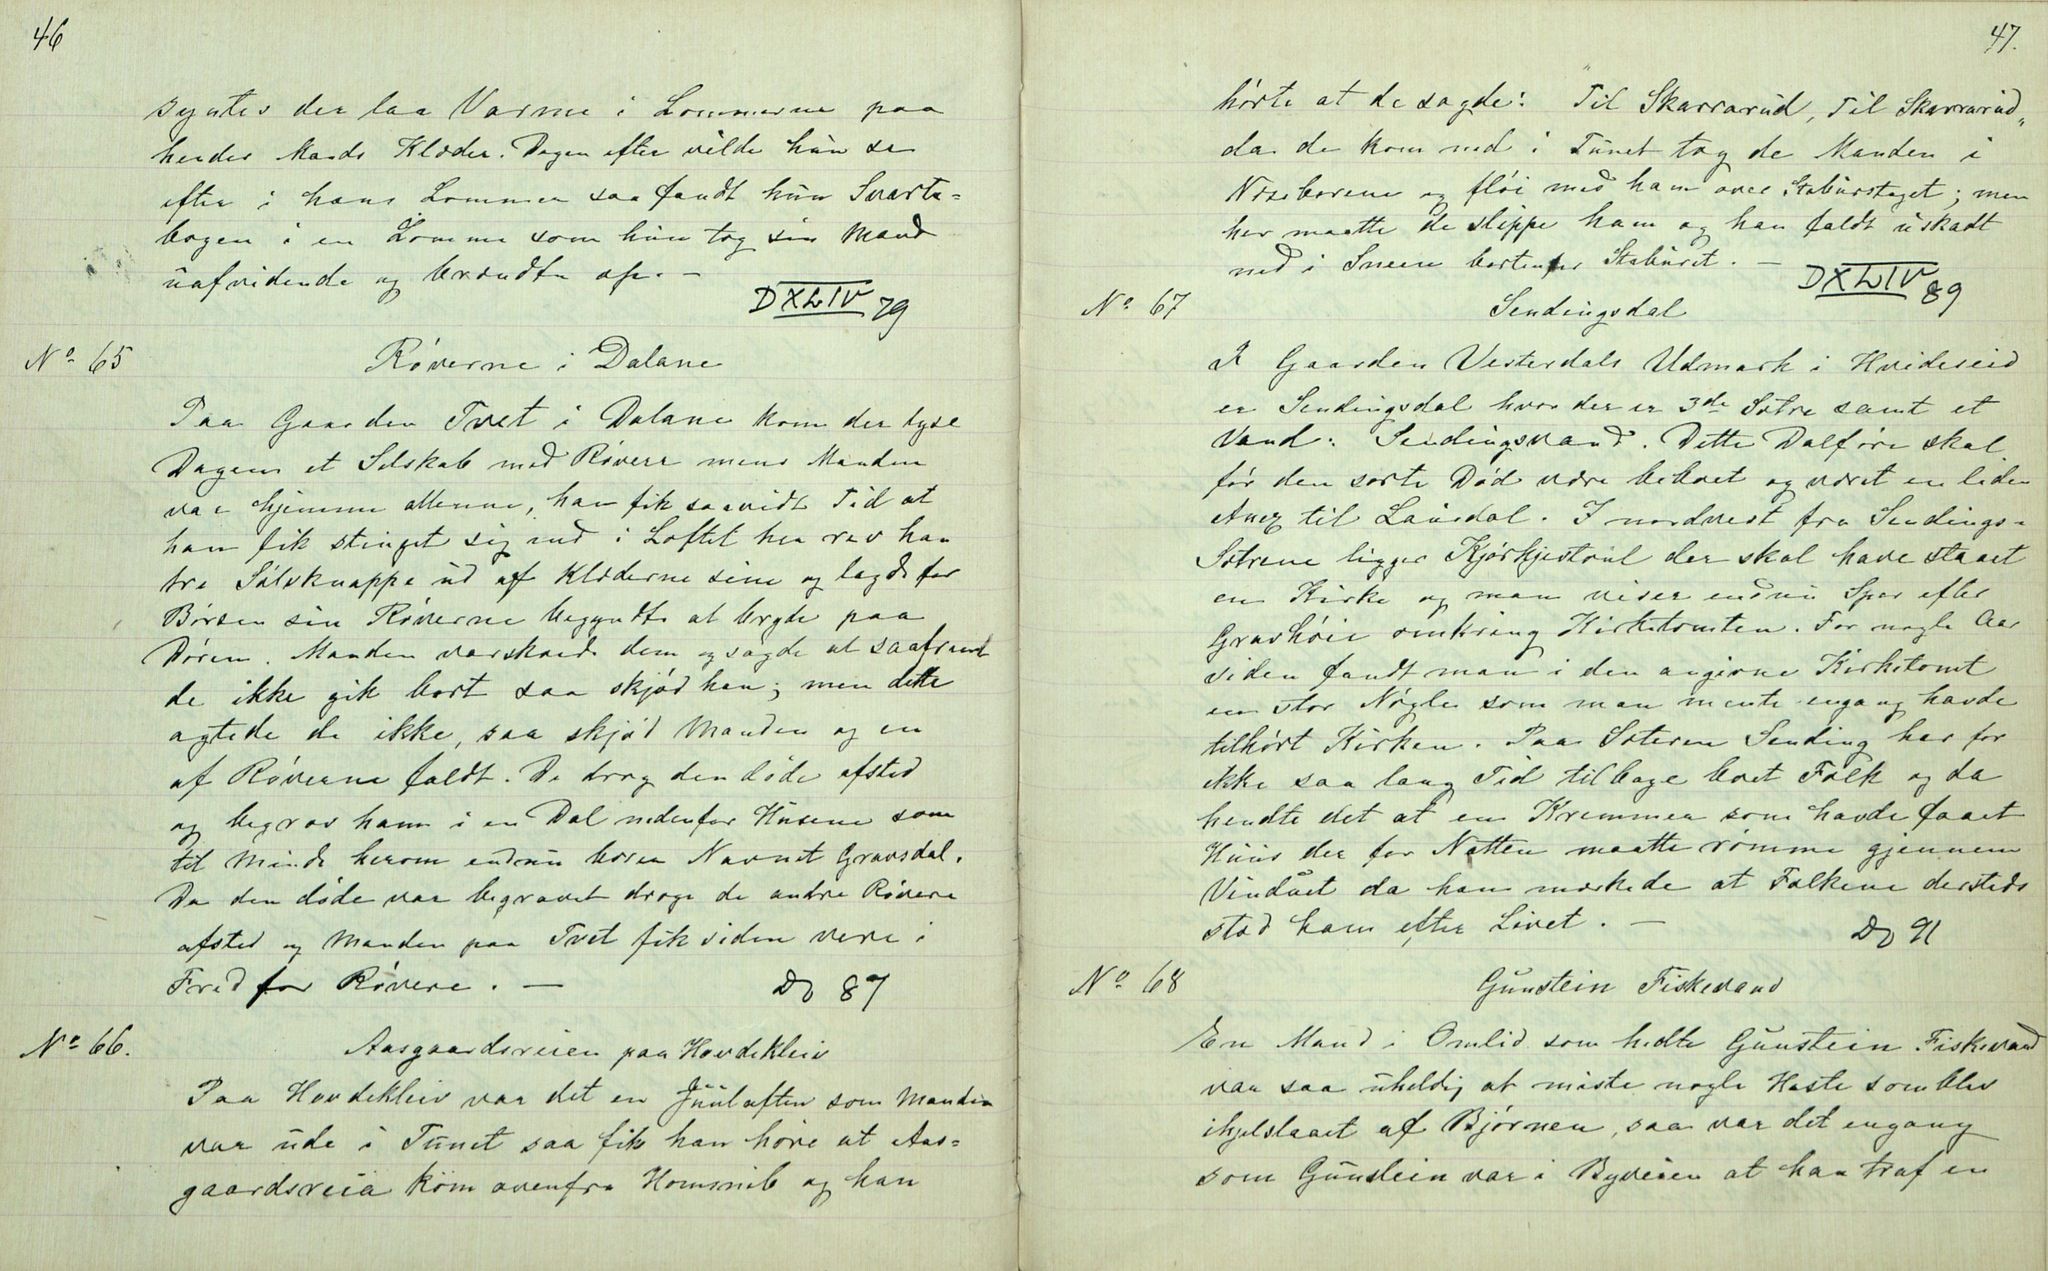 46
syntes der laa Varme i Lommerne paa
hendes Mands Klæder. Dagen efter vilde hun se
efter i hans Lommer saa fandt hun Svarte-
bogen i en Lomme som hun tog sin Mand
uafvidende og brændte op. —
DXLIV 79
No 65 Røverne i Dalane
Paa Gaarden Tvet i Dalane kom der lyse
Dagen et Selskab med Røvere mens Manden
var hjemme allene, han fik saavidt Tid at
han fik stengt sig ind i Loftet her rev han
tre Sølvknappe ud af Klæderne sine og lagde for
Børsen sin Røverne begyndte at bryde paa
Døren. Manden varskoede dem og sagde at saafremt
de ikke gik bort saa skjød han; men dette
agtede de ikke, saa skjød Manden og en
af Røverne faldt. De drog den døde afsted
og begrov ham i en Dal nedenfor Husene som
til Minde herom endnu bærer Navnet Gravsdal.
Da den døde var begravet droge de andre Røvere
afsted og Manden paa Tvet fik siden være i
Fred for Røvere. — Do 87
No 66. Aasgaardsreien paa Hovdekleiv
Paa Hovdekleiv var det en Juulaften som Manden
var ude i Tunet saa fik han høre at Aas-
gaardsreia kom ovenfra Hommelib og han
47.
hørte at de sagde: Til Skarrarud, Til Skarrarud„
da de kom ned i Tunet tog de Manden i
Næseborene og fløi med ham over Staburstaget; men
her maatte de slippe ham og han faldt uskadt
ned i Sneen bortenfor Staburet. —
DXLIV 89
No 67 Sendingsdal
I Gaarden Vesterdals Udmark i Hvideseid
er Sendingsdal hvor der er 3de Sætre samt et
Vand: Sendingsvand. Dette Dalføre skal
før den sorte Død være beboet og været en liden
Anex til Laurdal. I nordvest fra Sendings-
Sætrene ligger Kjørkjestøul der skal have staaet
en Kirke og man viser endnu Spor efter
Gravhøie omkring Kirketomten. For nogle Aar
siden fandt man i den angivne Kirketomt
en stor Nøgle som man mente engang havde
tilhørt Kirken. Paa Sæteren Sending har for
ikke saa lang Tid tilbage boet Folk og da
hendte det at en Kremmer som havde faaet
Huus der for Natten maatte rømme gjennem
Vinduet da han mærkede at Folkene dersteds
stod ham efter Livet. — Do 91
No 68 Gunstein Fiskevand
En Mand i Omlid som hedte Gunstein Fiskevand
var saa uheldig at miste nogle Heste som blev
ihjelslaaet af Bjørnen, saa var det engang
som Gunstein var i Byveien at han traf en